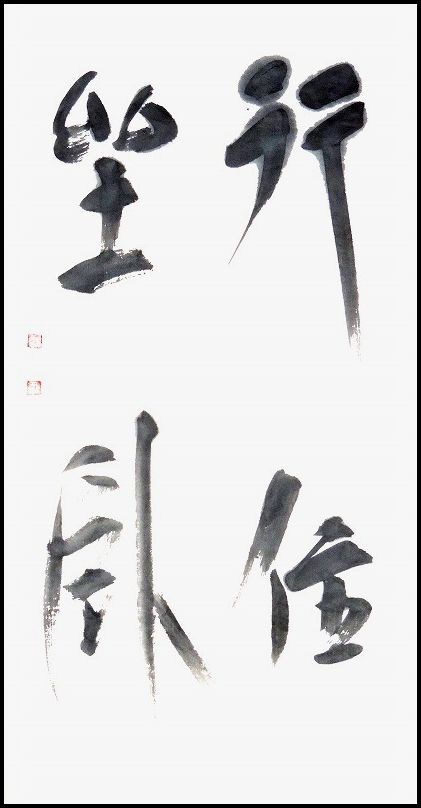 行住
坐臥